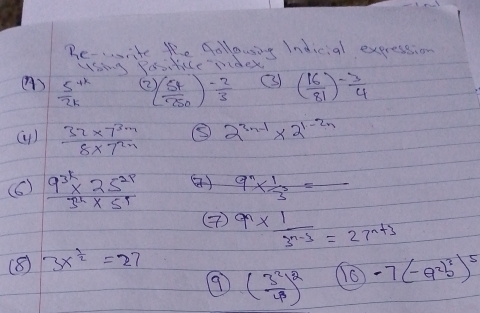 Re-write the following Indicial expression
using positive index
(1) 5^{+k}/2k (2) (54/250)^{-2/3} (3) (16/81)^{-3/4}
(4) 32 × 7^{3m} / 8 × 7^{2m} (5) 2^{3n-1} × 2^{1-2n}
(6) 9^{3k} × 25^{2p} / 3^{2k} × 5^{p}
(7) 9ⁿ × 1 / 3^{n-3} = 27^{n+3}
(8) 3x^{1/2} = 27
(9) (10) -7(-a²b³)⁵